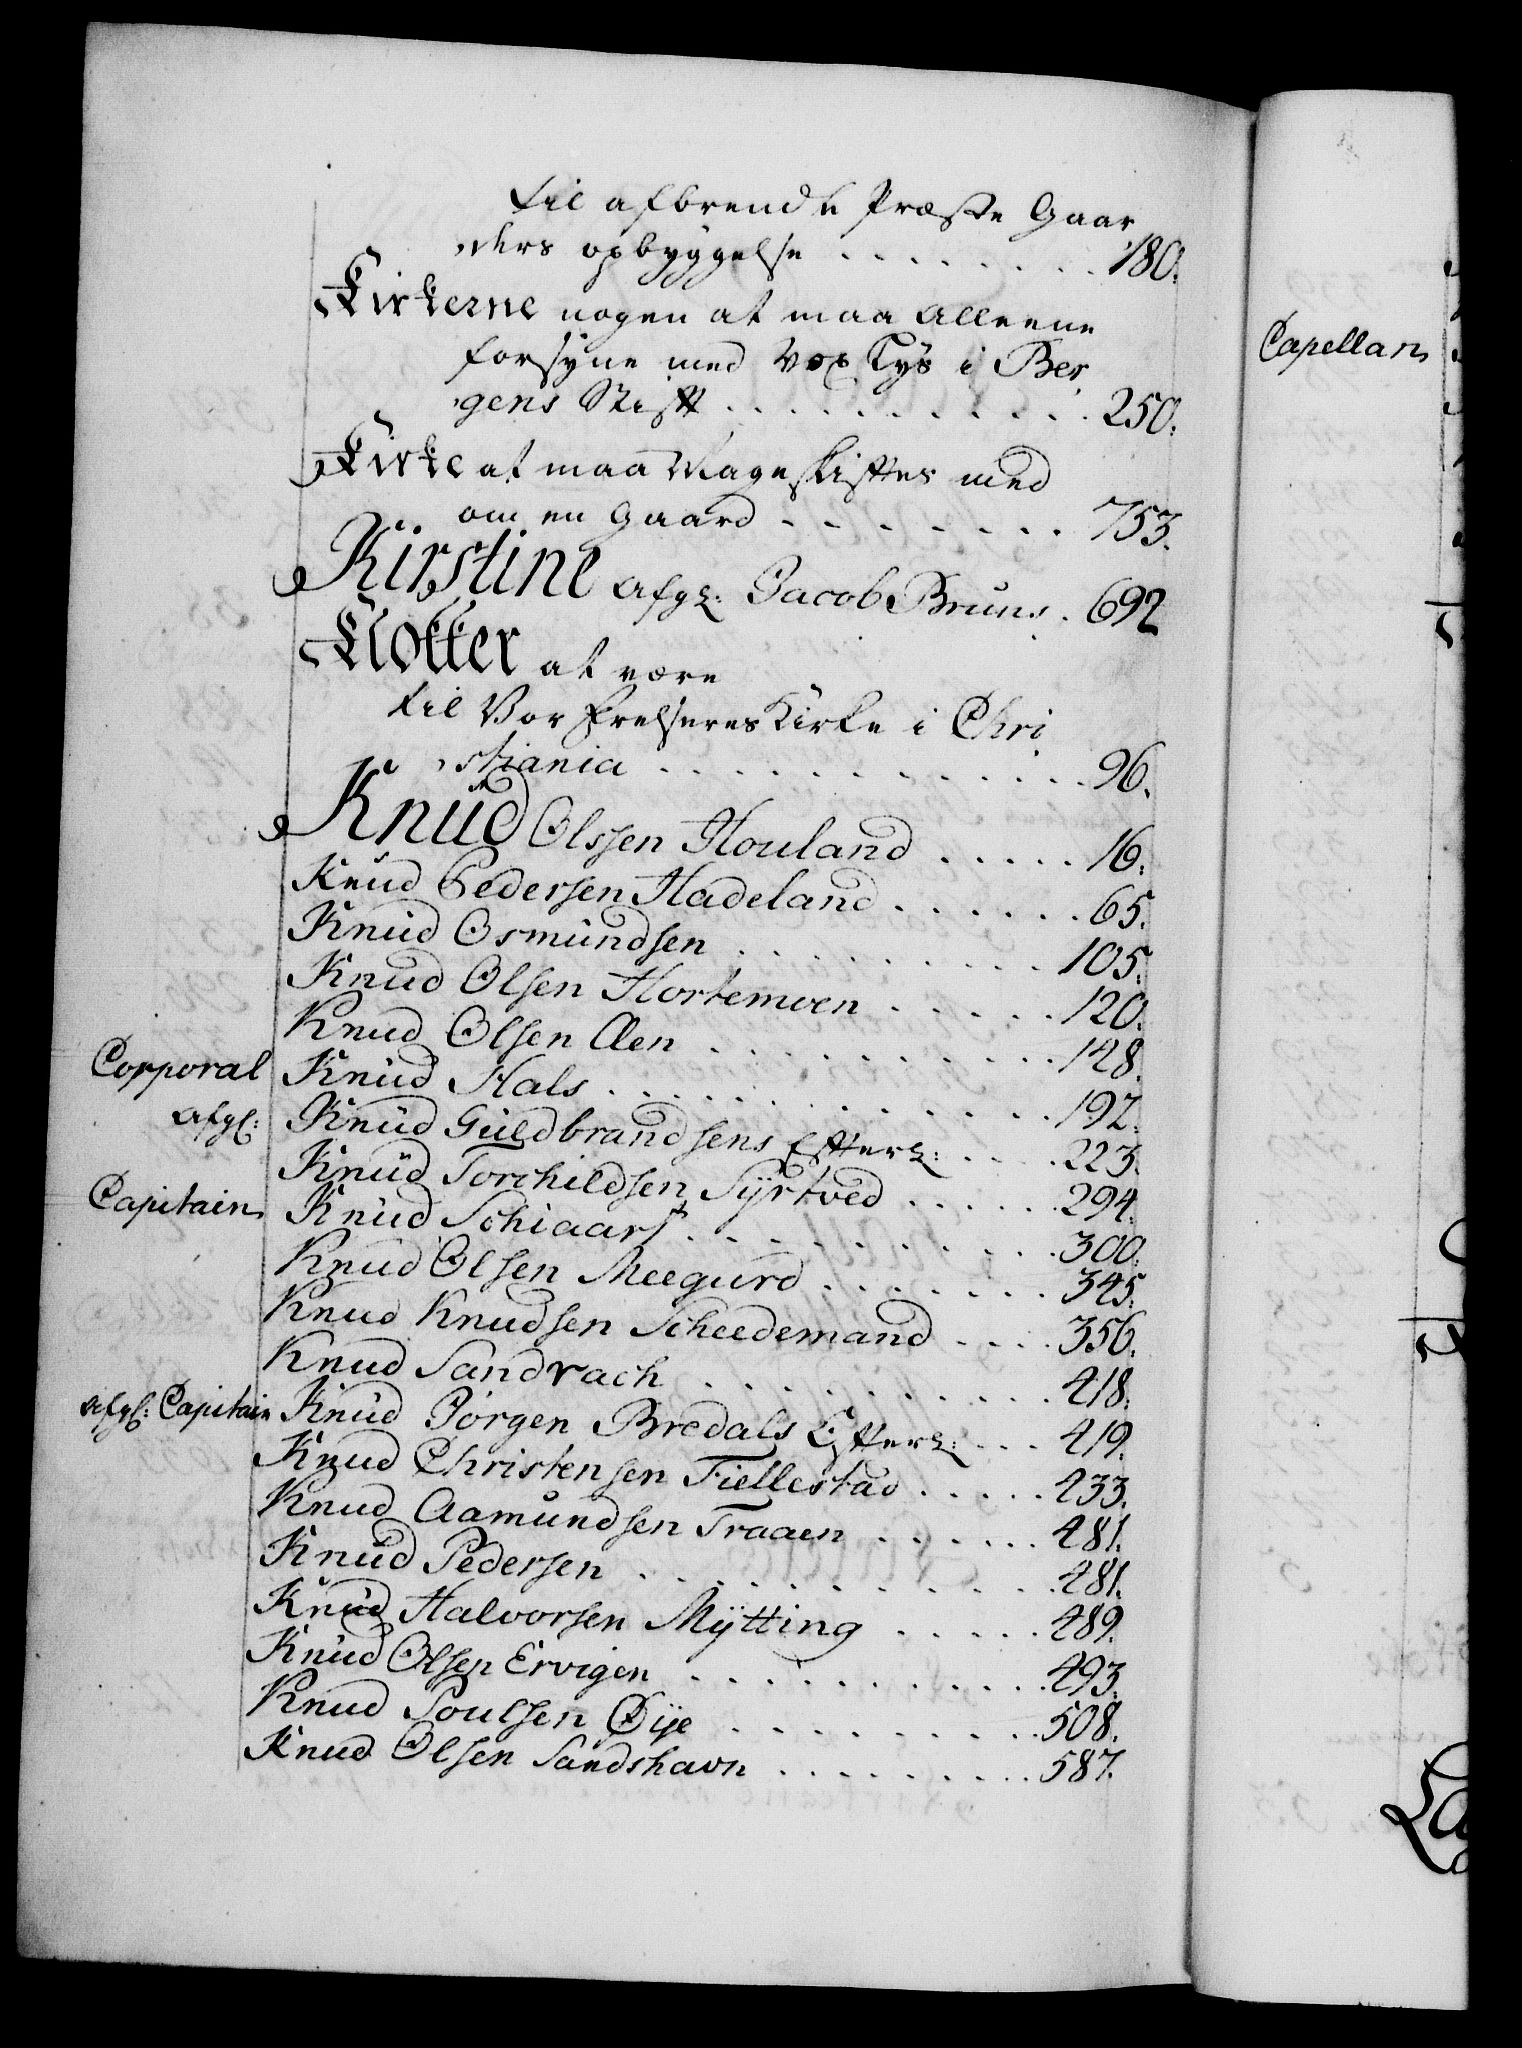 til afbrendte Præste Gaar
ders opbyggelse . . . . . . . . 180.
Kirkerne nogen at maa alleene
forsyne med vox Lys i Ber
gens Stift . . . . . . . . . . . 250.
Kirke at maa Mageskiftes med
om en Gaard . . . . . . . 753.
Kirstine afgl: Jacob Bruns . 692
Klokker at være
til Vor Frelseres Kirke i Chri
stiania . . . . . . . . . . . . 96.
Knud Olssen Houland . . . . . 16.
Knud Pedersen Hadeland . . . . . . 65.
Knud Osmundsen . . . . . . . . . 105.
Knud Olsen Hortemoen . . . . . 120.
Knud Olsen Aen . . . . . . . . . . 128.
Corporal Knud Hals . . . . . . . . . . . . . 192.
afgl: Knud Guldbrandsens Efterl: . . . . 223.
Knud Torchildsen Syrtved . . . . . . 294.
Capitain Knud Schiaart . . . . . . . . . . 300.
Knud Olsen Meegurd . . . . . . . 345.
Knud Knudsen Scheedemand . . . . 356.
Knud Sandrach . . . . . . . . . . 418.
afgl: Capitain Knud Jörgen Bredals Efterl: . . . 419.
Knud Christensen Fiellestad . . . . . 433.
Knud Aamundsen Traaen . . . . . . 481.
Knud Pedersen . . . . . . . . . . . 481.
Knud Halvorsen Mytting . . . . . 489.
Knud Olsen Ervigen . . . . . . . . . . 493.
Knud Poulsen Øye . . . . . . . . . 508.
Knud Olsen Sandshavn . . . . . . . . . 587.
Capellan